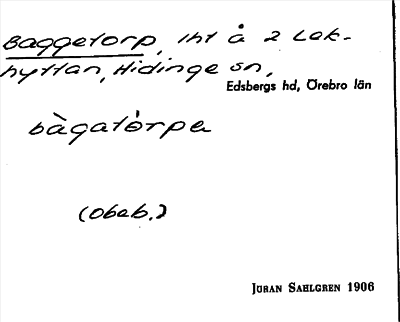 Baggetorp, lht å 2 Lek-
hyttan, Hidinge sn,
Edsbergs hd, Örebro län
bàgatòrpa
(obeb.)
JÖRAN SAHLGREN 1906